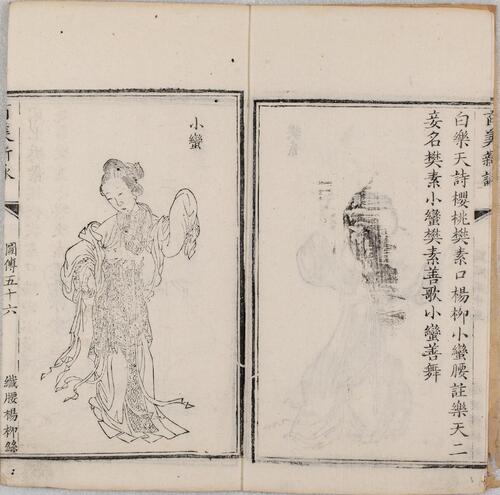 百美新詠
白樂天詩櫻桃樊素口楊柳小蠻腰註樂天二
妾名樊素小蠻樊素善歌小蠻善舞
小蠻
百美新詠
圖傳五十六
纖腰楊柳絲